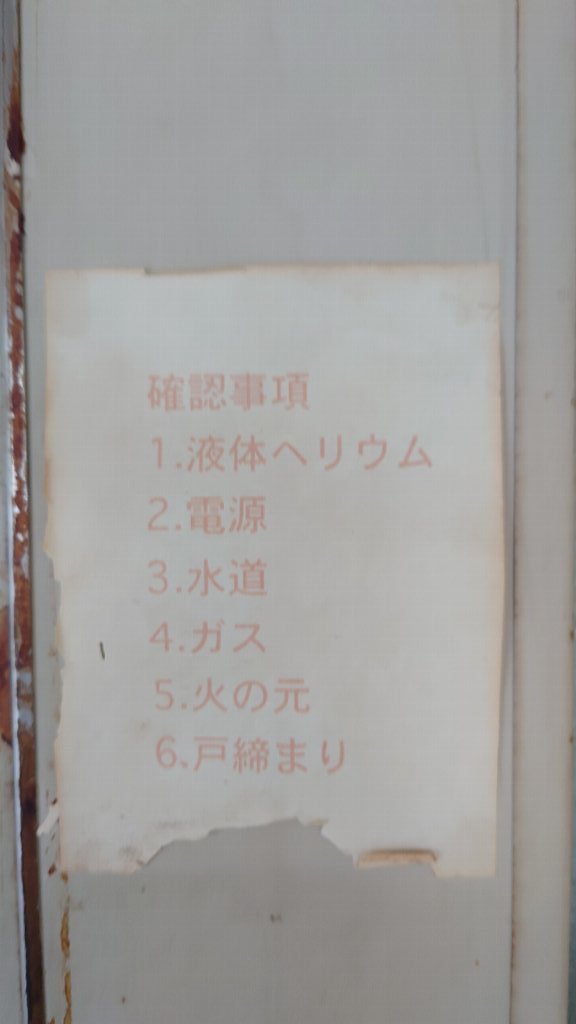 確認事項
1.液体ヘリウム
2.電源
3.水道
4.ガス
5.火の元
6.戸締まり